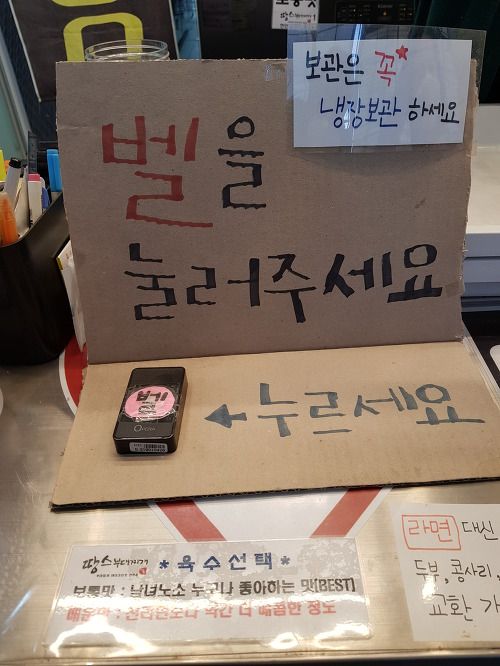 보관은 꼭
냉장보관 하세요
벨을
눌러주세요
벨
←누르세요
땅스부대찌개 *육수선택*
보통맛 : 남녀노소 누구나 좋아하는 맛[BEST]
매운맛 : 신라면보다 약간 더 매콤한 정도
라면 대신
두부, 콩사리
교환 가